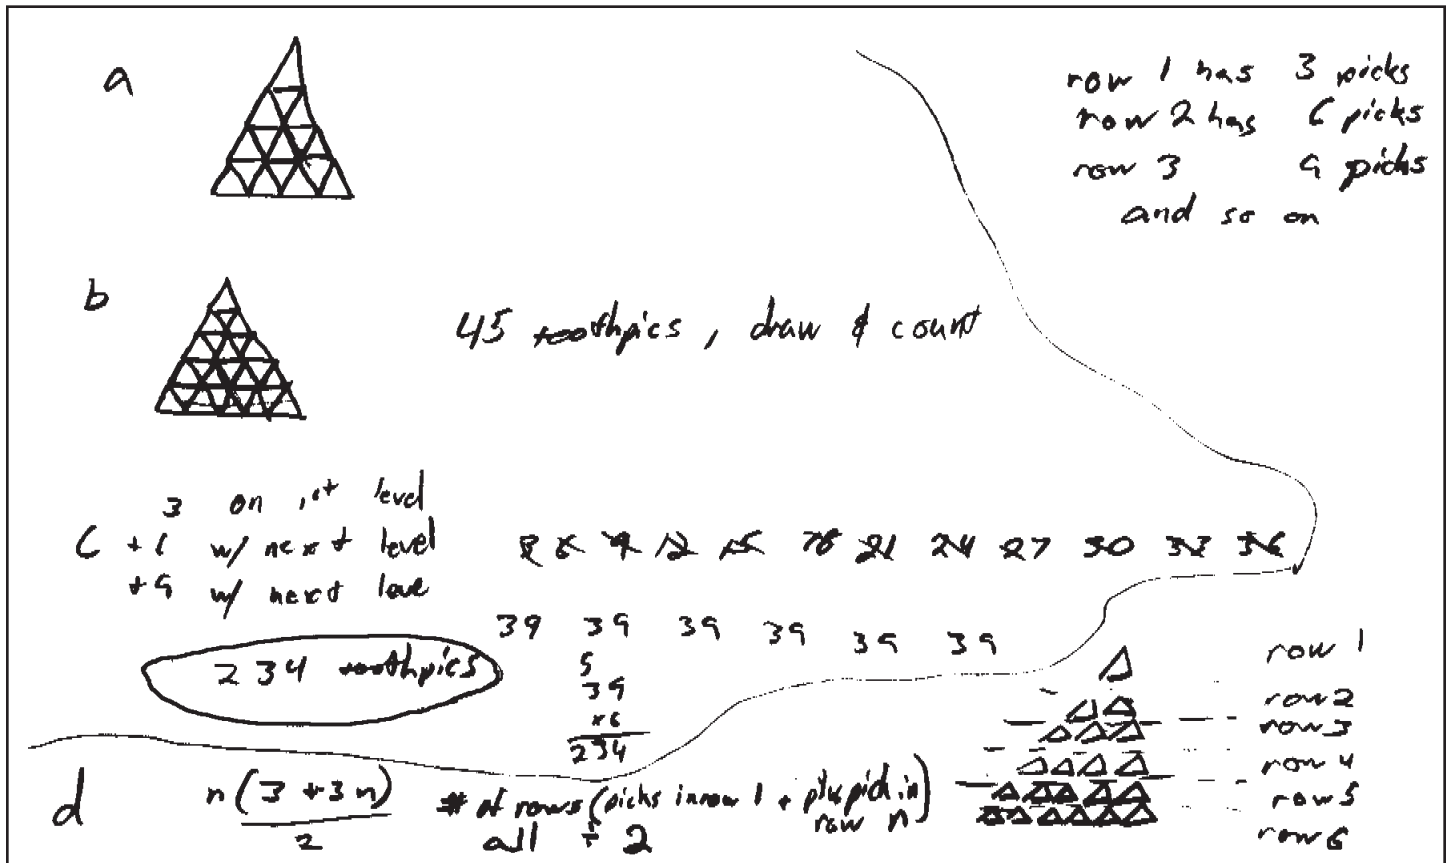 a
row 1 has 3 picks
row 2 has 6 picks
row 3 9 picks
and so on
b
45 toothpics, draw & count
3 on 1st level
C + 6 w/ next level
+ 9 w/ next leve
3 6 9 12 15 18 21 24 27 30 33 36
39 39 39 39 39 39
234 toothpics
5
39
x6
234
row 1
row 2
row 3
row 4
row 5
row 6
d
n(3 + 3n)
2
# of rows (picks in row 1 + plus pick in row n)
all ÷ 2